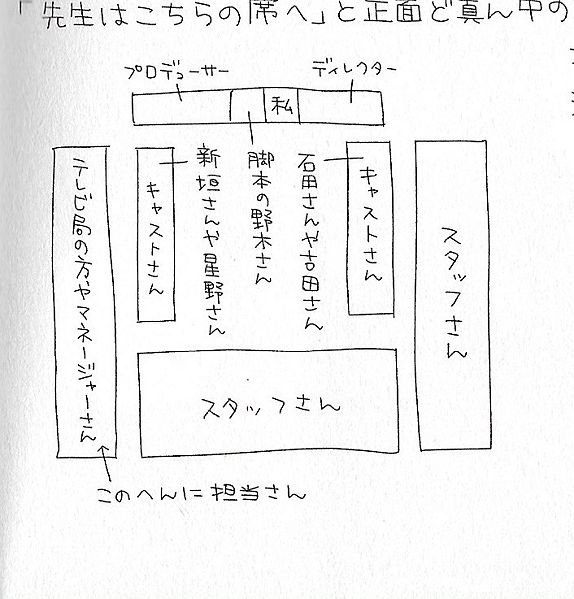 「先生はこちらの席へ」と正面ど真ん中の
プロデューサー
ディレクター
私
テレビ局の方やマネージャーさん
キャストさん
新垣さんや星野さん
脚本の野木さん
石田さんや古田さん
キャストさん
スタッフさん
スタッフさん
このへんに担当さん